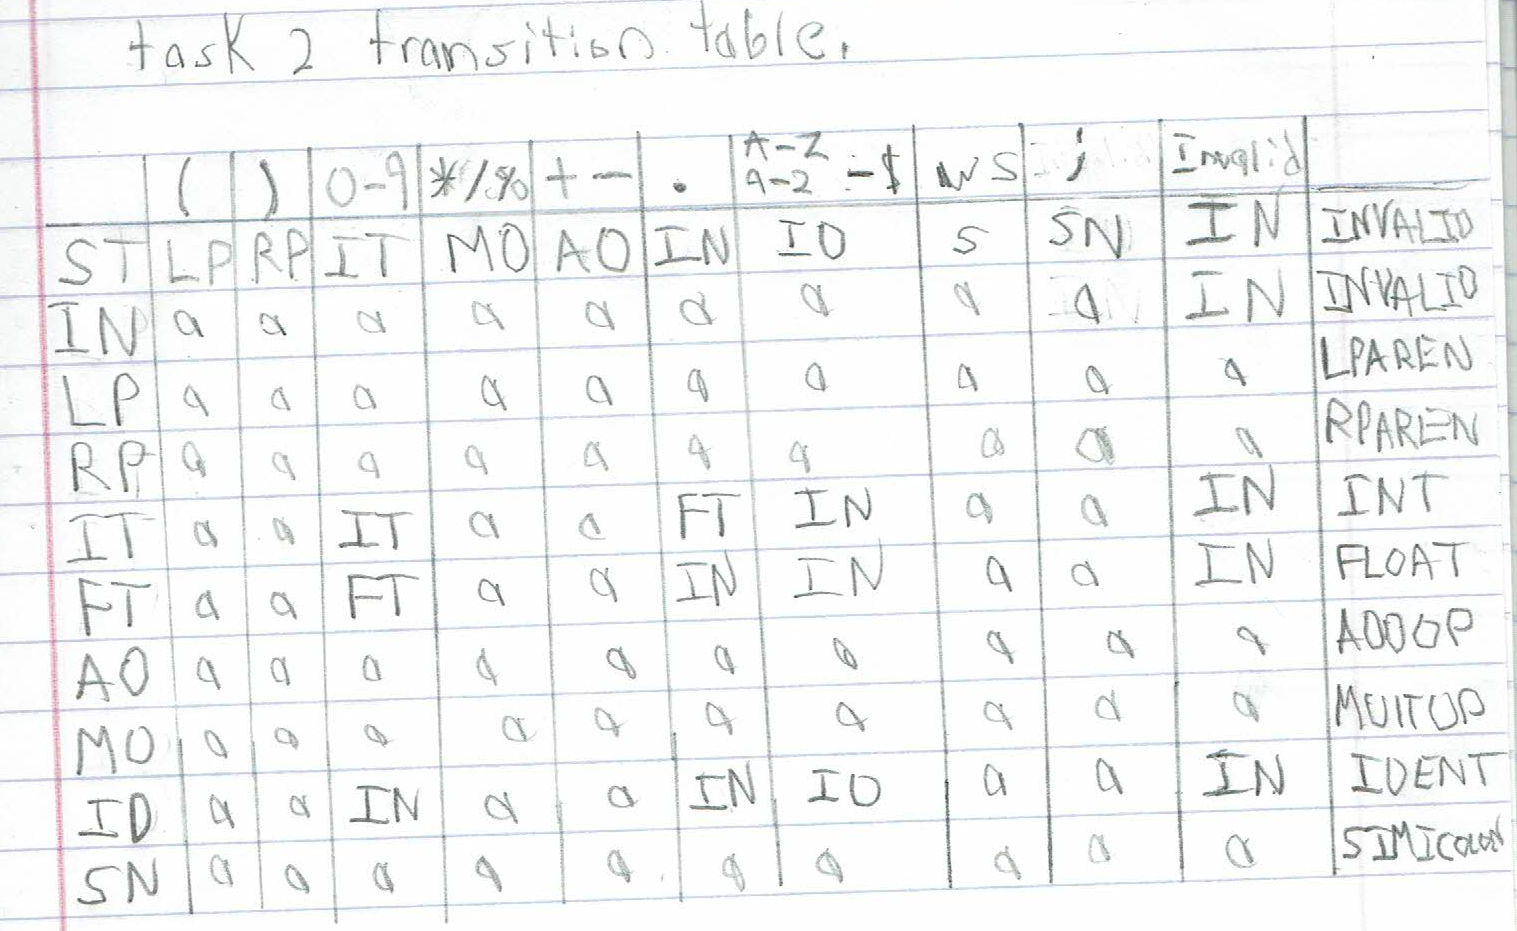 task 2 transition table.
( ) 0-9 */% + - . A-Z a-z _ $ WS ; Invalid
ST LP RP IT MO AO IN ID S SN IN INVALID
IN a a a a a a a a a IN INVALID
LP a a a a a a a a a a LPAREN
RP a a a a a a a a a a RPAREN
IT a a IT a a FT IN a a IN INT
FT a a FT a a IN IN a a IN FLOAT
AO a a a a a a a a a a ADDOP
MO a a a a a a a a a a MUITOP
ID a a IN a a IN ID a a IN IDENT
SN a a a a a a a a a a SIMICOLON